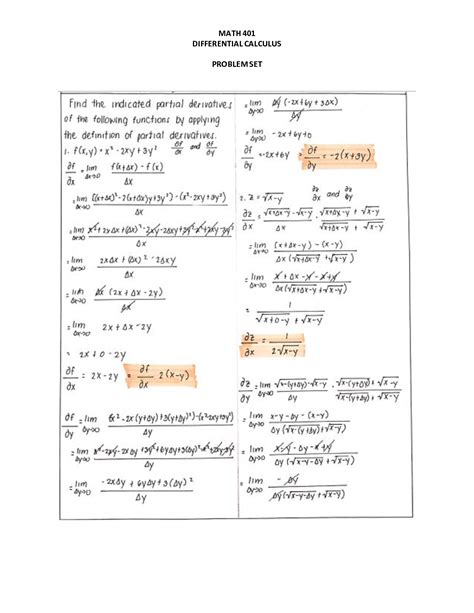 MATH 401
DIFFERENTIAL CALCULUS
PROBLEM SET
Find the indicated partial derivatives
of the following functions by applying
the definition of partial derivatives.
1. f(x,y) = x² - 2xy + 3y² ∂f/∂x and ∂f/∂y
∂f/∂x = lim Δx→0 f(x+Δx) - f(x) / Δx
= lim Δx→0 [(x+Δx)² - 2(x+Δx)y + 3y²] - (x² - 2xy + 3y²) / Δx
= lim Δx→0 x² + 2xΔx + (Δx)² - 2xy - 2Δxy + 3y² - x² + 2xy - 3y² / Δx
= lim Δx→0 2xΔx + (Δx)² - 2Δxy / Δx
= lim Δx→0 Δx (2x + Δx - 2y) / Δx
= lim Δx→0 2x + Δx - 2y
= 2x + 0 - 2y
∂f/∂x = 2x - 2y = ∂f/∂x 2(x-y)
∂f/∂y = lim Δy→0 (x² - 2x(y+Δy) + 3(y+Δy)²) - (x² - 2xy + 3y²) / Δy
= lim Δy→0
= lim Δy→0 -2xΔy + 6yΔy + 3(Δy)² / Δy
= lim Δy→0 Δy (-2x + 6y + 3Δx) / Δy
= lim Δy→0 -2x + 6y + 0
∂f/∂y = -2x + 6y = ∂f/∂y = -2(x+3y)
2. z = √x-y ∂z/∂x and ∂z/∂y
∂z/∂x = lim Δx→0 √x+Δx-y - √x-y / Δx · √x+Δx-y + √x-y / √x+Δx-y + √x-y
= lim Δx→0 (x+Δx-y) - (x-y) / Δx (√x+Δx-y + √x-y)
= lim Δx→0 x + Δx - y - x + y / Δx (√x+Δx-y + √x-y)
= 1 / √x+0-y + √x-y
∂z/∂x = 1 / 2√x-y
∂z/∂y = lim Δy→0 √x-(y+Δy) - √x-y / Δy · √x-(y+Δy) + √x-y / √x-(y+Δy) + √x-y
= lim Δy→0 x-y-Δy - (x-y) / Δy (√x-(y+Δy) + √x-y)
= lim Δy→0 x-y-Δy-x+y / Δy (√x-y-Δy + √x-y)
= lim Δy→0 -Δy / Δy (√x-y-Δy + √x-y)